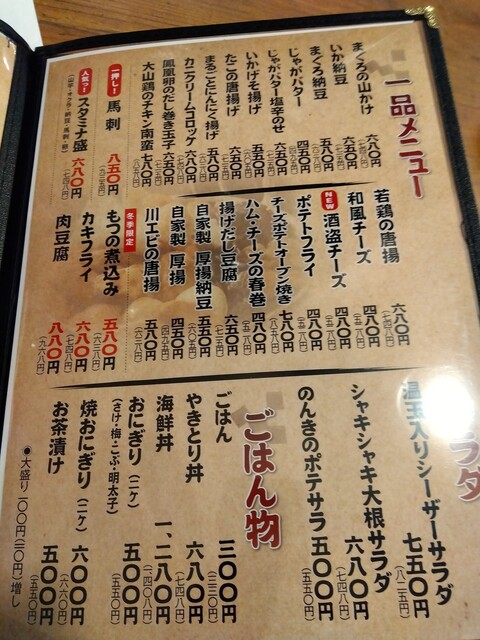 一品メニュー
まぐろの山かけ 六八〇円
いか納豆
まぐろ納豆
じゃがバター
じゃがバター塩辛のせ
いかげそ揚げ 五五〇円
たこの唐揚げ 六五〇円
まるごとにんにく揚げ 五八〇円
カニクリームコロッケ
鳳凰卵のだし巻き玉子
大山鶏のチキン南蛮 七八〇円
一押し!
馬刺 八五〇円
人気No.1
スタミナ盛 六八〇円
若鶏の唐揚 六八〇円
和風チーズ 四八〇円
NEW
酒盗チーズ 四八〇円
ポテトフライ 四八〇円
チーズポテトオーブン焼き 七八〇円
ハム・チーズの春巻 四八〇円
揚げだし豆腐 六五〇円
自家製 厚揚納豆 五五〇円
自家製 厚揚 四五〇円
川エビの唐揚 五八〇円
冬季限定
もつの煮込み 五八〇円
カキフライ 六八〇円
肉豆腐 八八〇円
ラダ
温玉入りシーザーサラダ 七五〇円
(八二五円)
シャキシャキ大根サラダ 六八〇円
(七四八円)
のんきのポテサラ 五〇〇円
(五五〇円)
ごはん物
ごはん 三〇〇円
(三三〇円)
やきとり丼 六八〇円
(七四八円)
海鮮丼 一、二八〇円
(一、四〇八円)
おにぎり(二ケ) 五〇〇円
(さけ・梅・こぶ・明太子) (五五〇円)
焼おにぎり(二ケ) 六〇〇円
(六六〇円)
お茶漬け 五〇〇円
(五五〇円)
●大盛り一〇〇円(一一〇円)増し